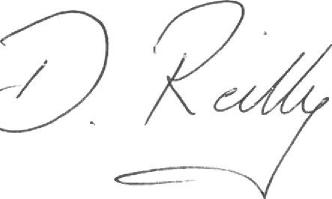 D. Reilly